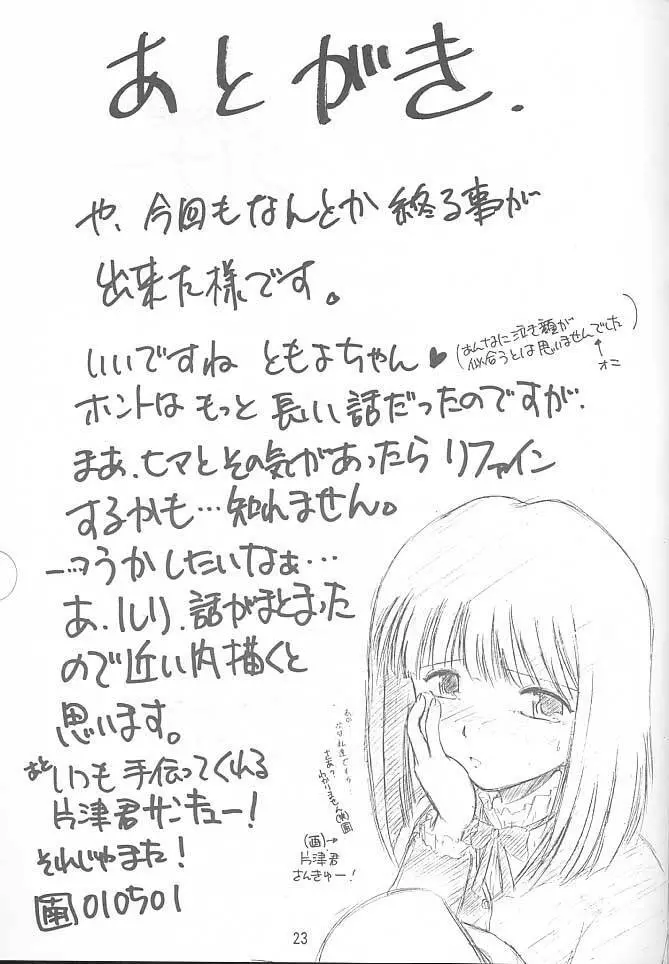 あとがき.
や、今回もなんとか 終る事が
出来た様です。
いいですね ともよちゃん♥
(あんなに泣き顔が
似合うとは思いませんでした)
↑
オニ
ホントは もっと 長い話だったのですが.
まあ.ヒマとその気があったら リファイン
するかも…知れません。
―つうかしたいなぁ…
あ.しり.話がまとまった
ので近い内描くと
思います。
あと いつも 手伝ってくれる
片津君サンキュー!
それじゃまた!
南 010501
さあ?
わかりません
(画)→
片津君
さんきゅー!
23